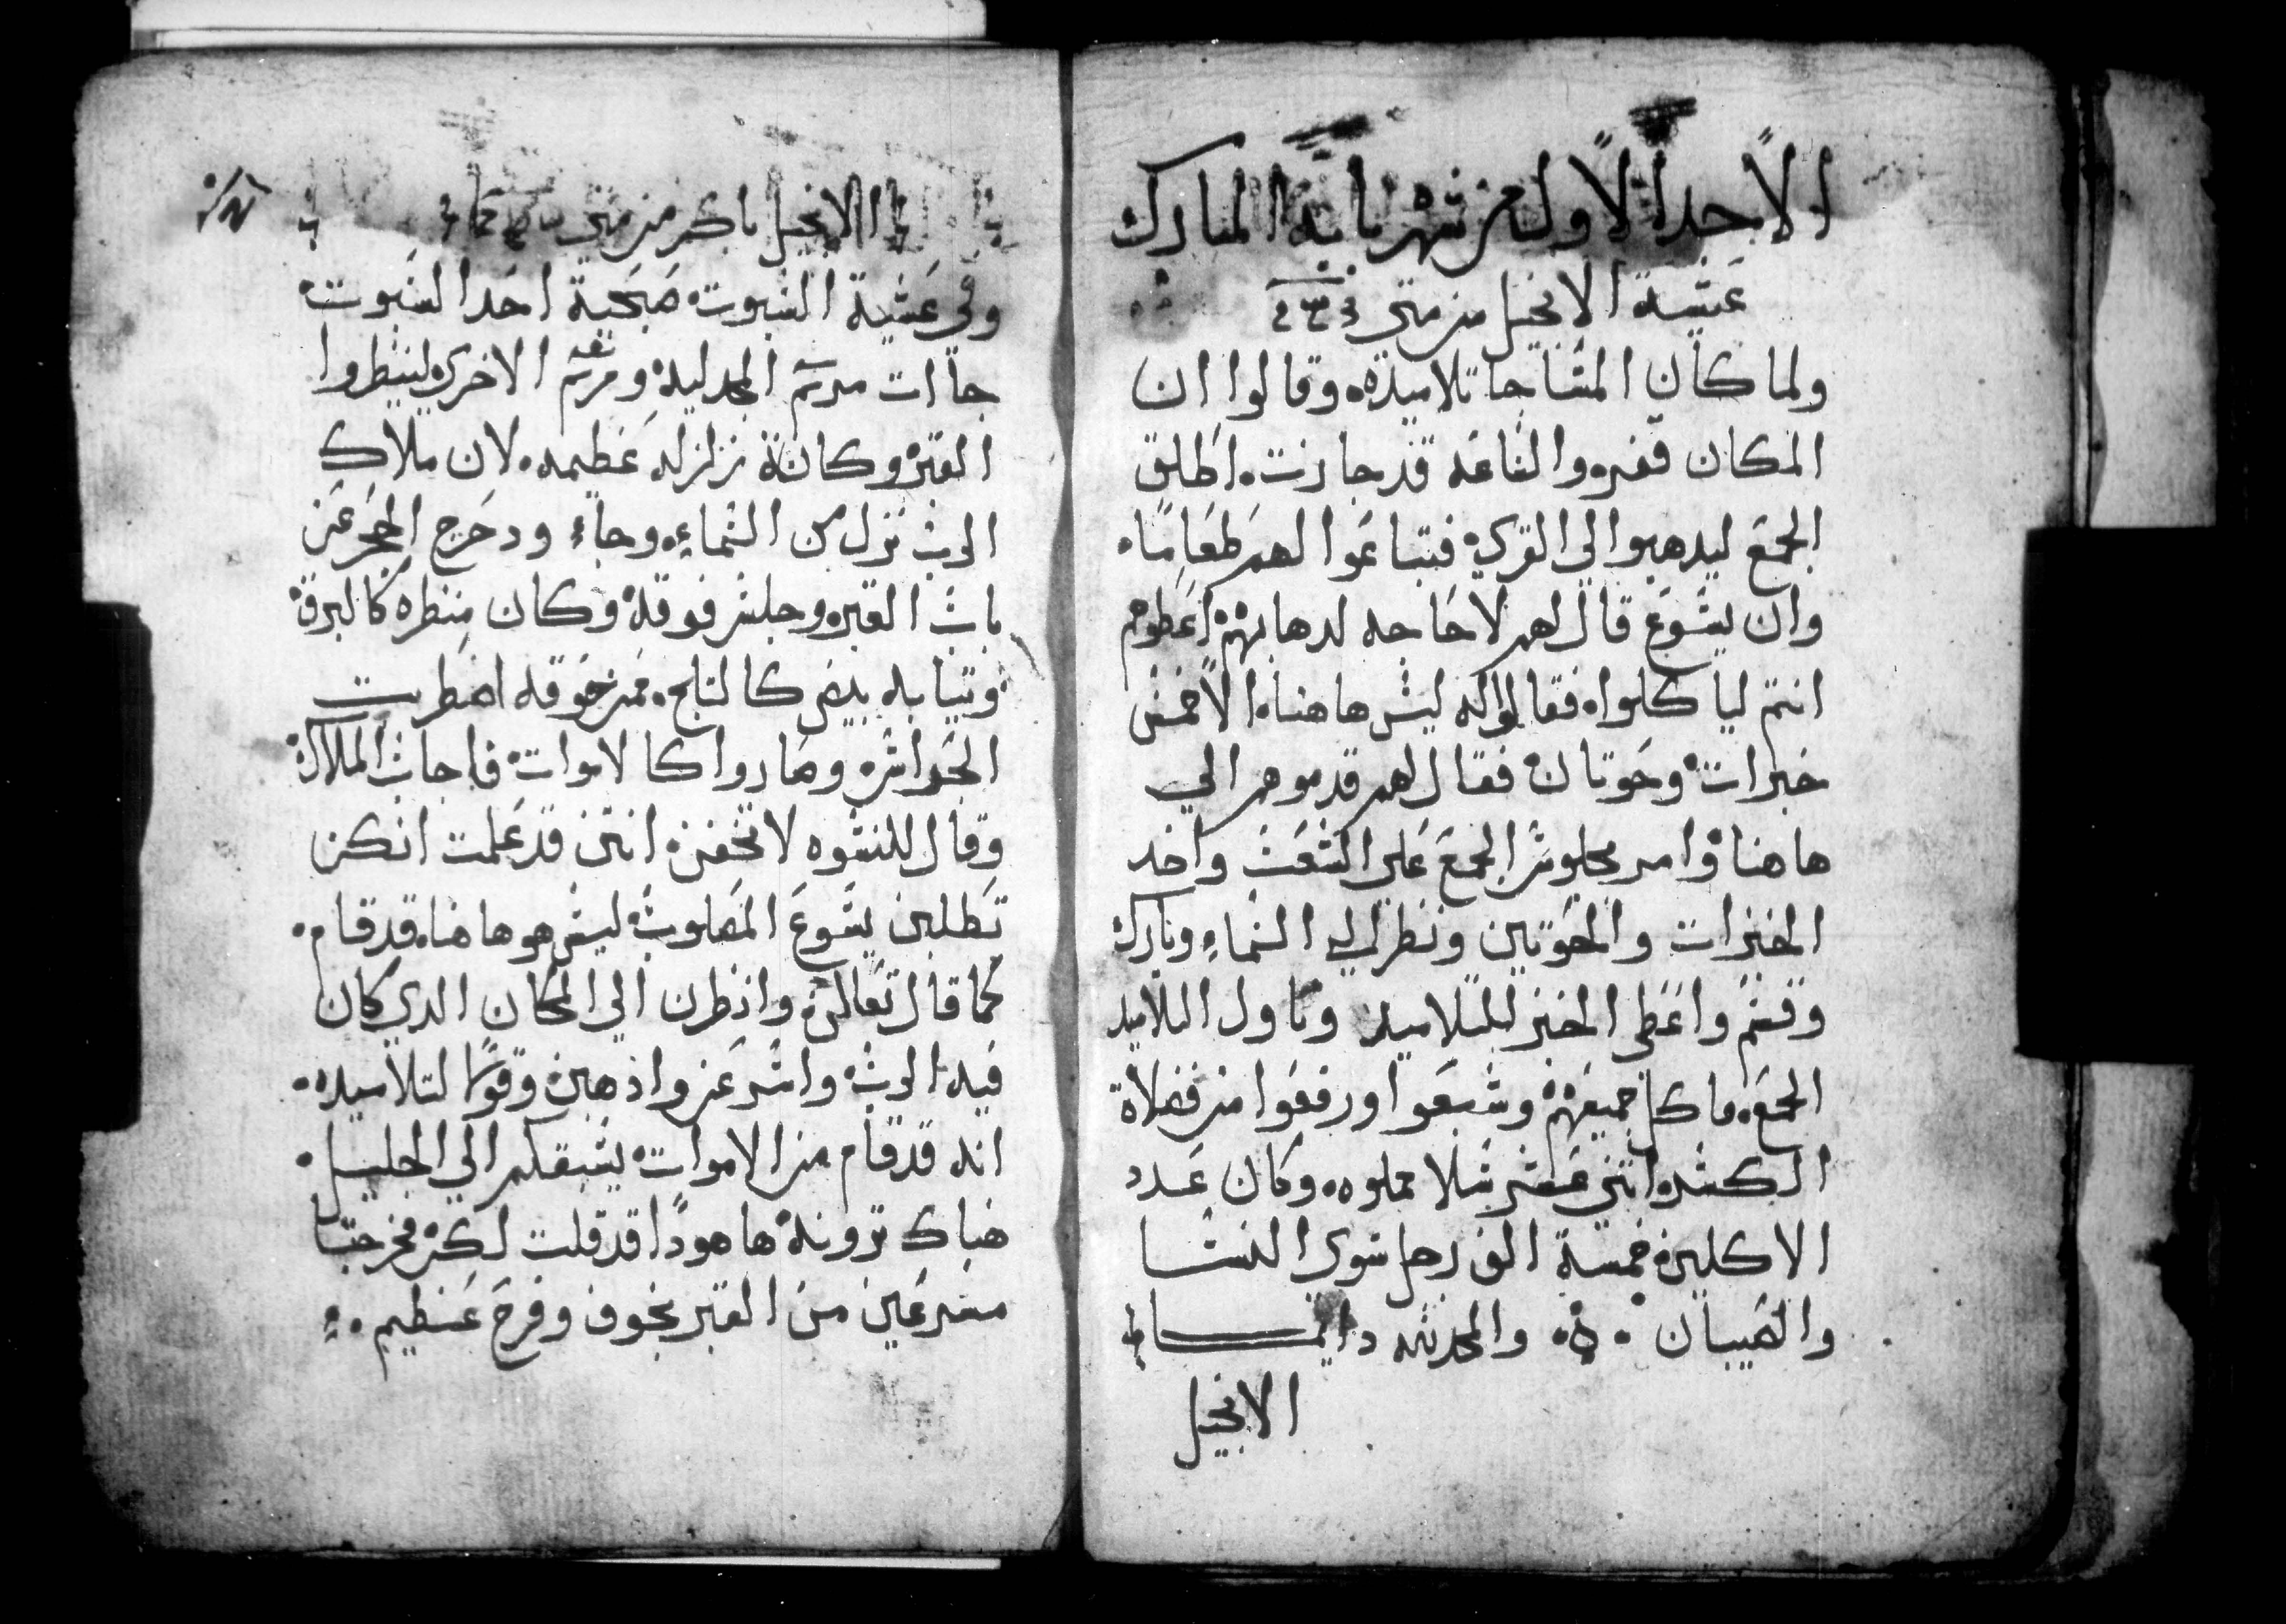 الاحد الاول من شهر بابه المبارك
عشية الانجيل من متي
ولما كان المسا جا تلاميده وقالوا ان
المكان قفره والساعه قد جازت. اطلق
الجمع ليدهبوا الي القري فيتباعوا لهم طعاما.
وان يسوع قال لهم لا حاجه لدهابهم اعطوهم
انتم لياكلوا. فقالوا له ليس هاهنا. الا خمس
خبزات وحوتان فقال لهم قدموهم الي
هاهنا وامر بجلوس الجمع علي الشعب واخد
الخبزات والحوتين ونظر الي السماء وبارك
وقسم واعطي الخبز للتلاميد وناول التلاميد
الجمع. فاكل جميعهم وشبعوا ورفعوا من فضلاة
الكسر. اتني عشر سلا مملوه. وكان عدد
الاكلين خمسة الف رجل سوي النسا
والصبيان . والمجد لله دايما
الانجيل
الانجيل باكر من متي
وفي عشية السبوت صبحية احد السبوت
جاات مريم المجدلية ومريم الاخري لينظروا
القبر وكانة زلزله عظيمه. لان ملاك
الرب نزل من السماء. وجاء ودحرج الحجر عن
باب القبر. وجلس فوقه وكان منظره كالبرق
وتيابه بيض كالتلج. فمن خوفه اضطربت
الحراس. وصاروا كالاموات فاجاب الملاك
وقال للنسوه لا تخفن انتن قد علمت انكن
تطلبن يسوع المصلوب ليس هو هاهنا. قد قام.
كما قال تعالن وانظرن الي المكان الدي كان
فيه الرب واسرعن واذهبن وقولا لتلاميده.
انه قد قام من الاموات يسبقكم الي الجليل.
هناك ترونه هاهودا قد قلت لكن فخرجتا
مسرعين من القبر بخوف وفرح عظيم.